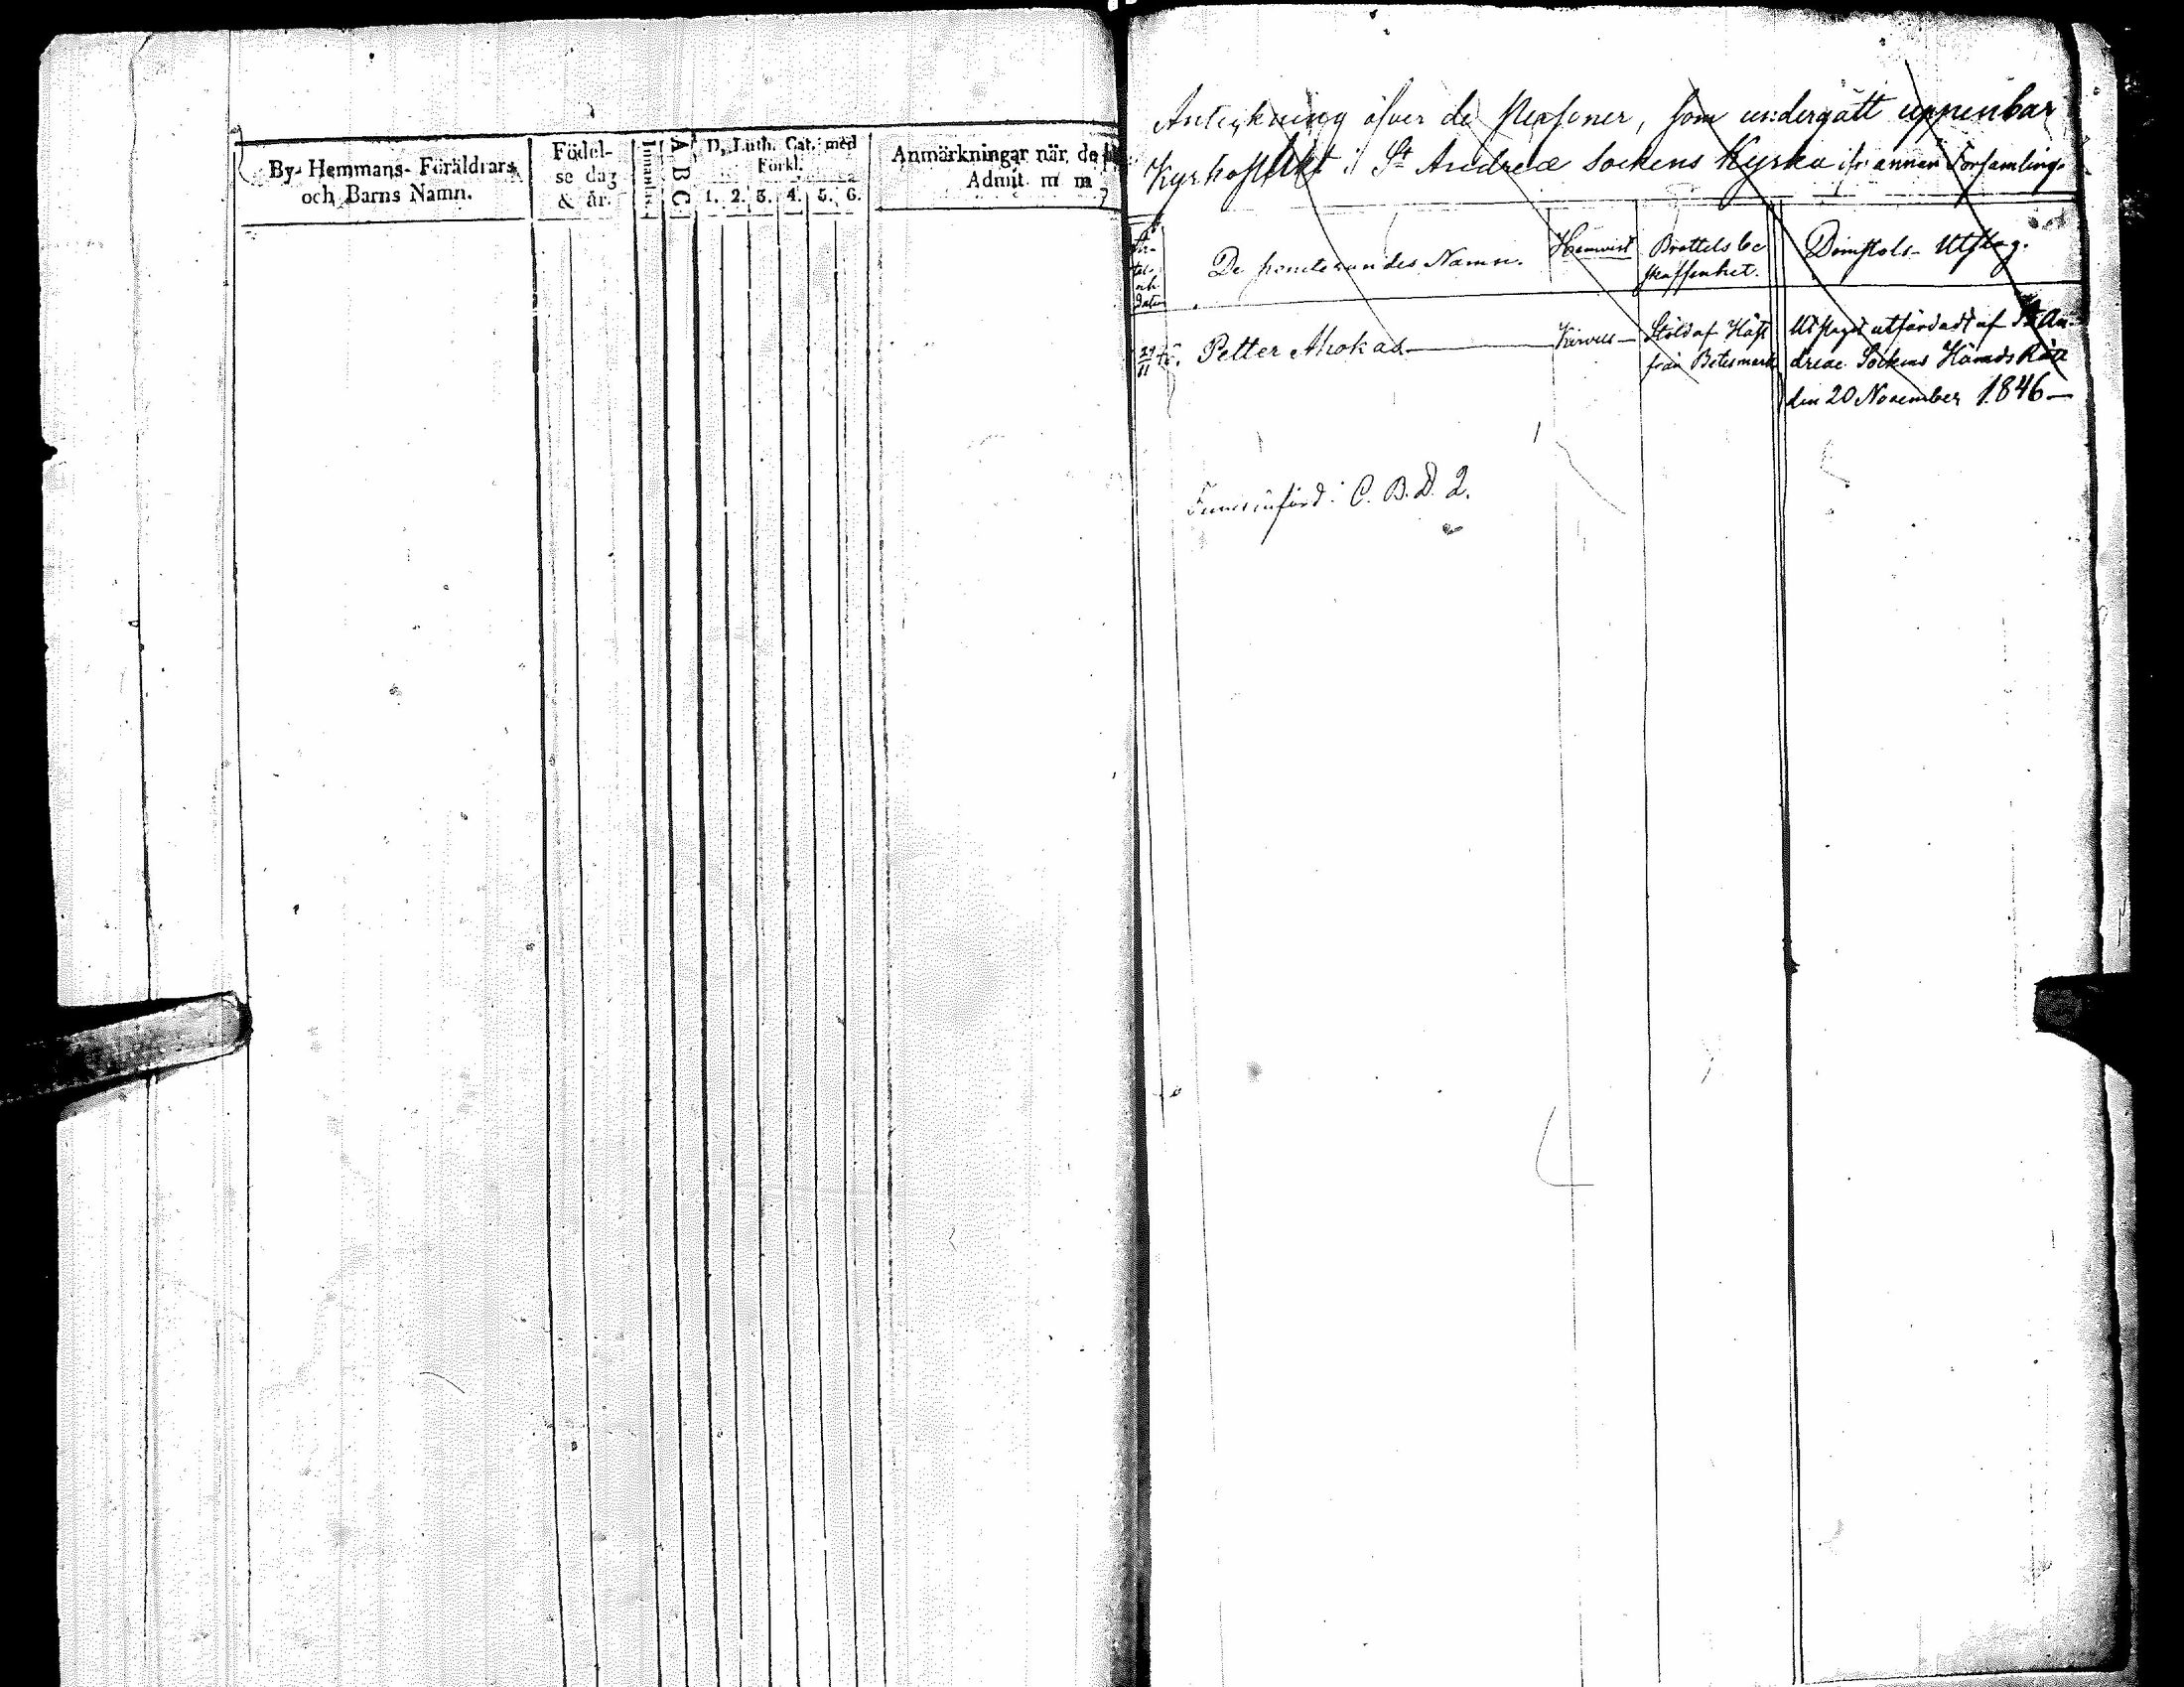 By- Hemmans- Föräldrars
och Barns Namn.
Födel-
se dag
& år.
Innanläs.
A B C
D. Luth. Cat. med
Förkl.
1. 2. 3. 4. 5. 6.
Anmärkningar när de
Admit. m m
Anteckning öfver de Personer, som undergått uppenbar
Kyrkoplikt i St Andreæ Sockens Kyrka ifr. annan Församling.
och
Datum
De poniterandes Namn.
Hemvist
Brottets be
skaffenhet.
Domstols- Utslag.
29/11
Petter Ahokas
Kirvus
Stöld af Häst
från Betesmark
Utslaget utfärdadt af St An-
dreae Sockens Härads Rätt
den 20 November 1846
Finnes införd i C. B. D. 2.